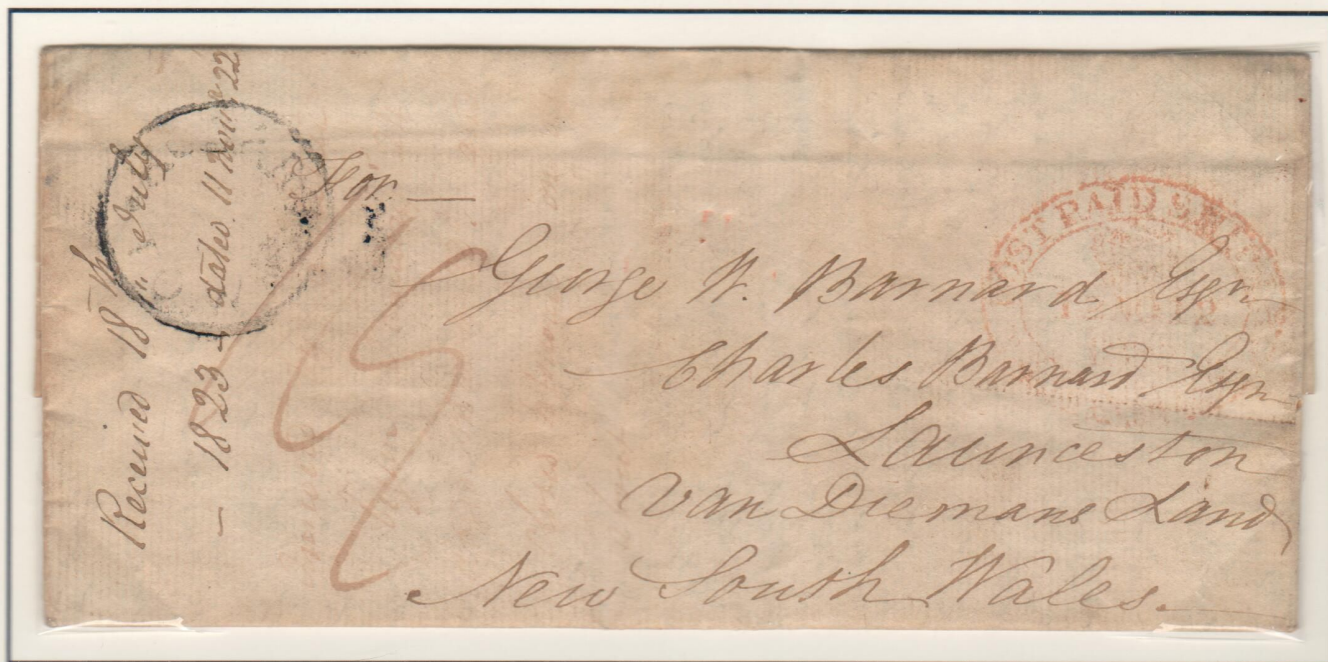 Received 18th July
— 1823 — dated 11 Novr 22
For —
George W. Barnard Esqr
Charles Barnard Esqr
Launceston
Van Diemans Land
New South Wales.
POST PAID SHIP